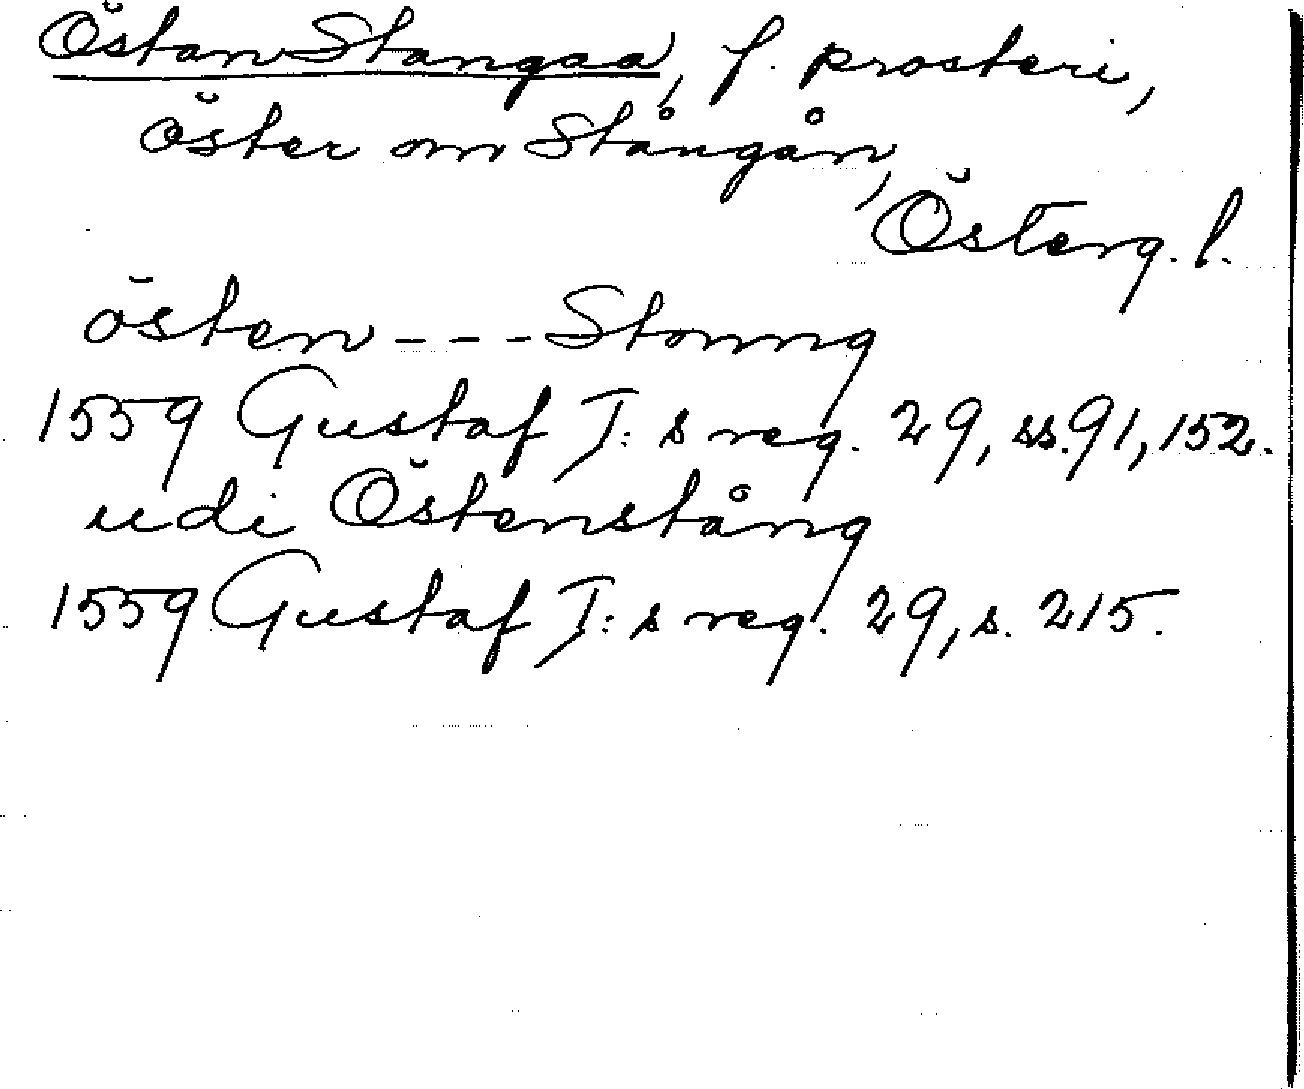 Östan Stangaa, f. prosteri,
öster om Stångån,
Österg. l.
östen - - - Stonng
1559 Gustaf I:s reg. 29, ss. 91, 152.
udi Östenstång
1559 Gustaf I:s reg. 29, s. 215.